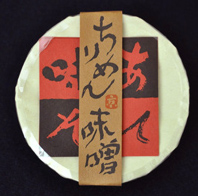 ちりめん味噌
あ
味